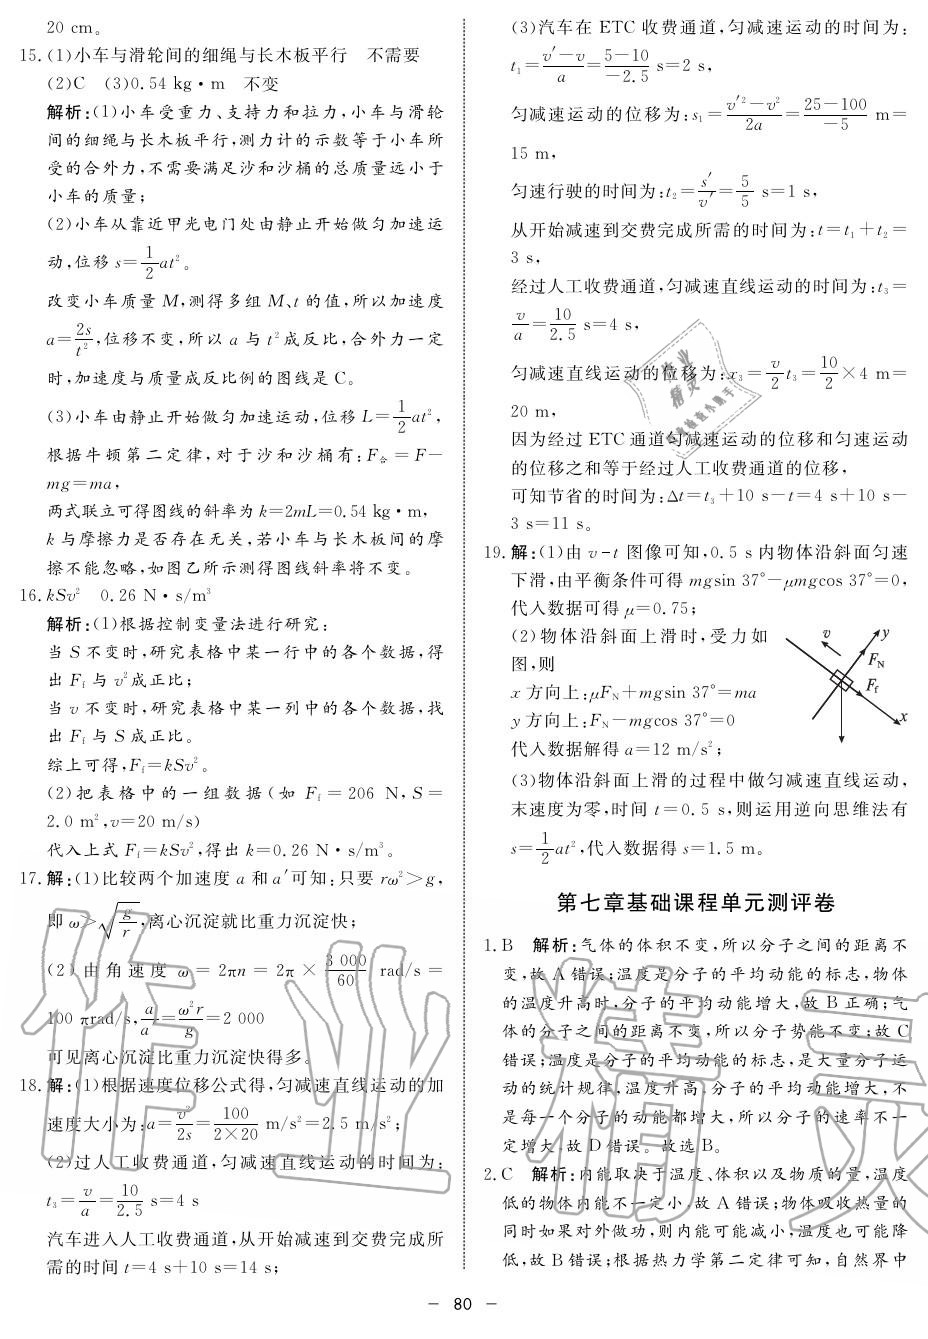 20 cm。
15.(1)小车与滑轮间的细绳与长木板平行　不需要
(2)C　(3)0.54 kg·m　不变
解析:(1)小车受重力、支持力和拉力,小车与滑轮
间的细绳与长木板平行,测力计的示数等于小车所
受的合外力,不需要满足沙和沙桶的总质量远小于
小车的质量;
(2)小车从靠近甲光电门处由静止开始做匀加速运
动,位移 s=1/2at²。
改变小车质量 M,测得多组 M、t 的值,所以加速度
a=2s/t²,位移不变,所以 a 与 t²成反比,合外力一定
时,加速度与质量成反比例的图线是 C。
(3)小车由静止开始做匀加速运动,位移 L=1/2at²,
根据牛顿第二定律,对于沙和沙桶有:F合=F-
mg=ma,
两式联立可得图线的斜率为 k=2mL=0.54 kg·m,
k 与摩擦力是否存在无关,若小车与长木板间的摩
擦不能忽略,如图乙所示测得图线斜率将不变。
16.kSv²　0.26 N·s/m³
解析:(1)根据控制变量法进行研究:
当 S 不变时,研究表格中某一行中的各个数据,得
出 Ff 与 v²成正比;
当 v 不变时,研究表格中某一列中的各个数据,找
出 Ff 与 S 成正比。
综上可得,Ff=kSv²。
(2)把表格中的一组数据(如 Ff=206 N,S=
2.0 m²,v=20 m/s)
代入上式 Ff=kSv²,得出 k=0.26 N·s/m³。
17.解:(1)比较两个加速度 a 和 a′可知:只要 rω²>g,
即 ω>√(g/r),离心沉淀就比重力沉淀快;
(2)由角速度 ω=2πn=2π×3 000/60 rad/s=
100 πrad/s,a/a′=ω²r/g=2 000
可见离心沉淀比重力沉淀快得多。
18.解:(1)根据速度位移公式得,匀减速直线运动的加
速度大小为:a=v²/2s=100/(2×20) m/s²=2.5 m/s²;
(2)过人工收费通道,匀减速直线运动的时间为:
t₃=v/a=10/2.5 s=4 s
汽车进入人工收费通道,从开始减速到交费完成所
需的时间 t=4 s+10 s=14 s;
(3)汽车在 ETC 收费通道,匀减速运动的时间为:
t₁=(v′-v)/a=(5-10)/(-2.5) s=2 s,
匀减速运动的位移为:s₁=(v′²-v²)/2a=(25-100)/(-5) m=
15 m,
匀速行驶的时间为:t₂=s′/v′=5/5 s=1 s,
从开始减速到交费完成所需的时间为:t=t₁+t₂=
3 s,
经过人工收费通道,匀减速直线运动的时间为:t₃=
v/a=10/2.5 s=4 s,
匀减速直线运动的位移为:x₃=v/2 t₃=10/2×4 m=
20 m,
因为经过 ETC 通道匀减速运动的位移和匀速运动
的位移之和等于经过人工收费通道的位移,
可知节省的时间为:Δt=t₃+10 s-t=4 s+10 s-
3 s=11 s。
19.解:(1)由 v-t 图像可知,0.5 s 内物体沿斜面匀速
下滑,由平衡条件可得 mgsin 37°-μmgcos 37°=0,
代入数据可得 μ=0.75;
(2)物体沿斜面上滑时,受力如
图,则
x 方向上:μFN+mgsin 37°=ma
y 方向上:FN-mgcos 37°=0
代入数据解得 a=12 m/s²;
v
y
FN
Ff
x
(3)物体沿斜面上滑的过程中做匀减速直线运动,
末速度为零,时间 t=0.5 s,则运用逆向思维法有
s=1/2at²,代入数据得 s=1.5 m。
第七章基础课程单元测评卷
1.B　解析:气体的体积不变,所以分子之间的距离不
变,故 A 错误;温度是分子的平均动能的标志,物体
的温度升高时,分子的平均动能增大,故 B 正确;气
体的分子之间的距离不变,所以分子势能不变;故 C
错误;温度是分子的平均动能的标志,是大量分子运
动的统计规律,温度升高,分子的平均动能增大,不
是每一个分子的动能都增大,所以分子的速率不一
定增大,故 D 错误。故选 B。
2.C　解析:内能取决于温度、体积以及物质的量,温度
低的物体内能不一定小,故 A 错误;物体吸收热量的
同时如果对外做功,则内能可能减小,温度也可能降
低,故 B 错误;根据热力学第二定律可知,自然界中
- 80 -
作业精灵